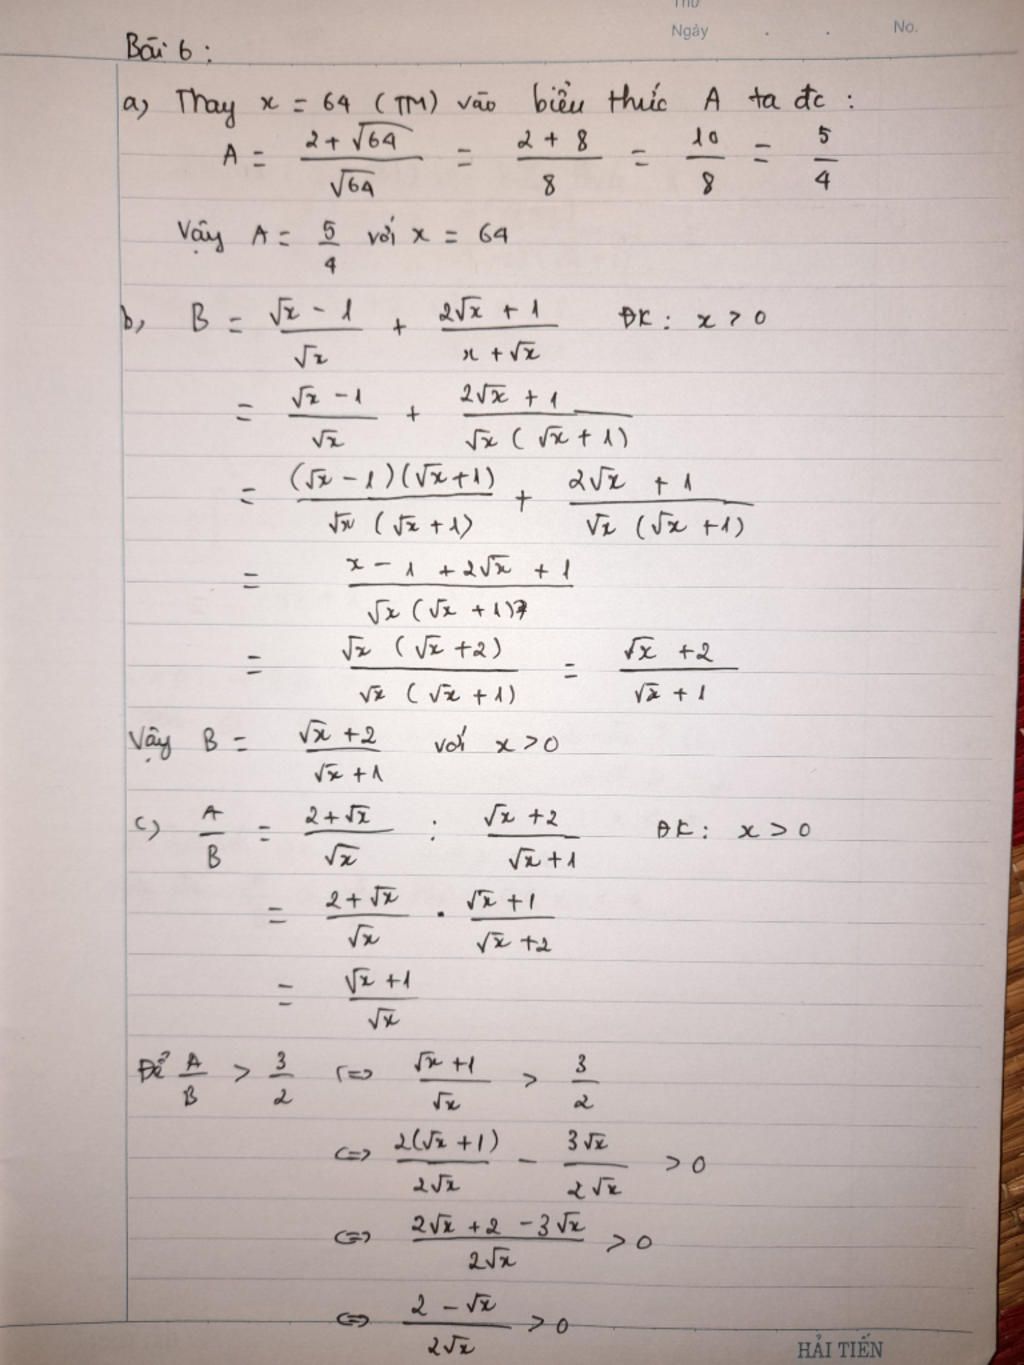 Thứ
Ngày . . No.
Bài 6 :
a, Thay x = 64 (TM) vào biểu thức A ta đc :
A = (2 + √64)/√64 = (2 + 8)/8 = 10/8 = 5/4
Vậy A = 5/4 với x = 64
b, B = (√x - 1)/√x + (2√x + 1)/(x + √x) ĐK : x > 0
= (√x - 1)/√x + (2√x + 1)/(√x (√x + 1))
= ((√x - 1)(√x + 1))/(√x (√x + 1)) + (2√x + 1)/(√x (√x + 1))
= (x - 1 + 2√x + 1)/(√x (√x + 1))
= (√x (√x + 2))/(√x (√x + 1)) = (√x + 2)/(√x + 1)
Vậy B = (√x + 2)/(√x + 1) với x > 0
c) A/B = (2 + √x)/√x : (√x + 2)/(√x + 1) ĐK : x > 0
= (2 + √x)/√x . (√x + 1)/(√x + 2)
= (√x + 1)/√x
Để A/B > 3/2 <=> (√x + 1)/√x > 3/2
<=> (2(√x + 1))/(2√x) - (3√x)/(2√x) > 0
<=> (2√x + 2 - 3√x)/(2√x) > 0
<=> (2 - √x)/(2√x) > 0
HẢI TIẾN